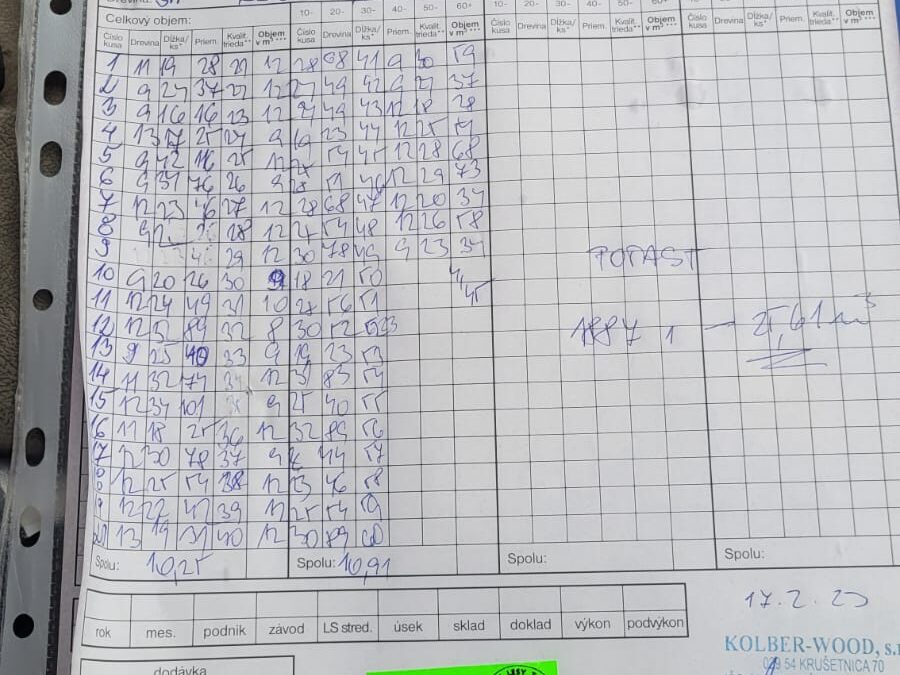 Celkový objem:
10- 20- 30- 40- 50- 60+ 10- 20- 30- 40- 50- 60+
Číslo kusa Drevina Dĺžka/ks* Priem. Kvalit. trieda** Objem v m³ *** Číslo kusa Drevina Dĺžka/ks* Priem. Kvalit. trieda** Objem v m³ *** Číslo kusa Drevina Dĺžka/ks* Priem. Kvalit. trieda** Objem v m³ *** Číslo kusa Drevina Dĺžka/ks* Priem. Kvalit. trieda** Objem v m³ ***
1 11 19 28 21 12 28 68 41 9 30 59
2 9 27 37 22 12 27 49 42 9 21 37
3 9 16 16 23 12 27 49 43 12 18 28
4 13 17 25 24 9 19 23 44 12 25 54
5 9 42 25 12 54 45 12 28 68
6 9 31 76 26 9 28 51 46 12 29 73
7 12 23 46 27 12 28 68 47 12 20 34
8 9 28 12 25 54 48 12 26 58
9 29 12 30 78 49 9 23 34
10 9 20 26 30 9 18 21 50 4,45
POTAST
11 12 24 49 31 10 28 56 51
12 12 32 89 32 8 30 52 52
1887, - 25,61 m³
13 9 25 40 33 9 19 23 53
14 11 32 74 34 12 31 83 54
15 12 34 101 9 25 40 55
16 11 18 25 36 12 32 89 56
17 12 30 78 37 9 44 57
12 25 54 38 12 23 46 58
9 12 22 41 39 12 25 54 59
20 13 19 31 40 12 30 89 60
Spolu: 10,25 Spolu: 10,91 Spolu: Spolu:
17. 2. 23
rok mes. podnik závod LS stred. úsek sklad doklad výkon podvýkon
KOLBER-WOOD, s.r
029 54 KRUŠETNICA 70
dodávka